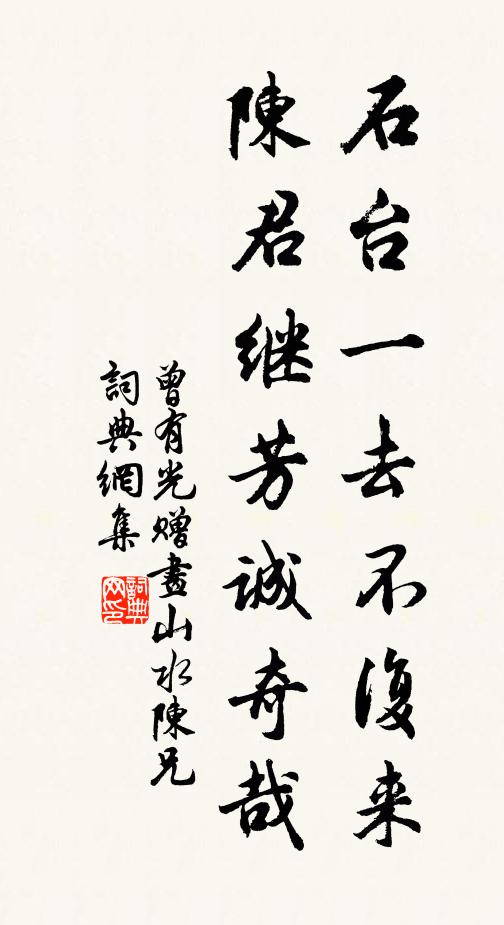 石台一去不復来
陳君继芳誠奇哉
曾有光赠畫山水陳兄
詞典網集
詞典网印